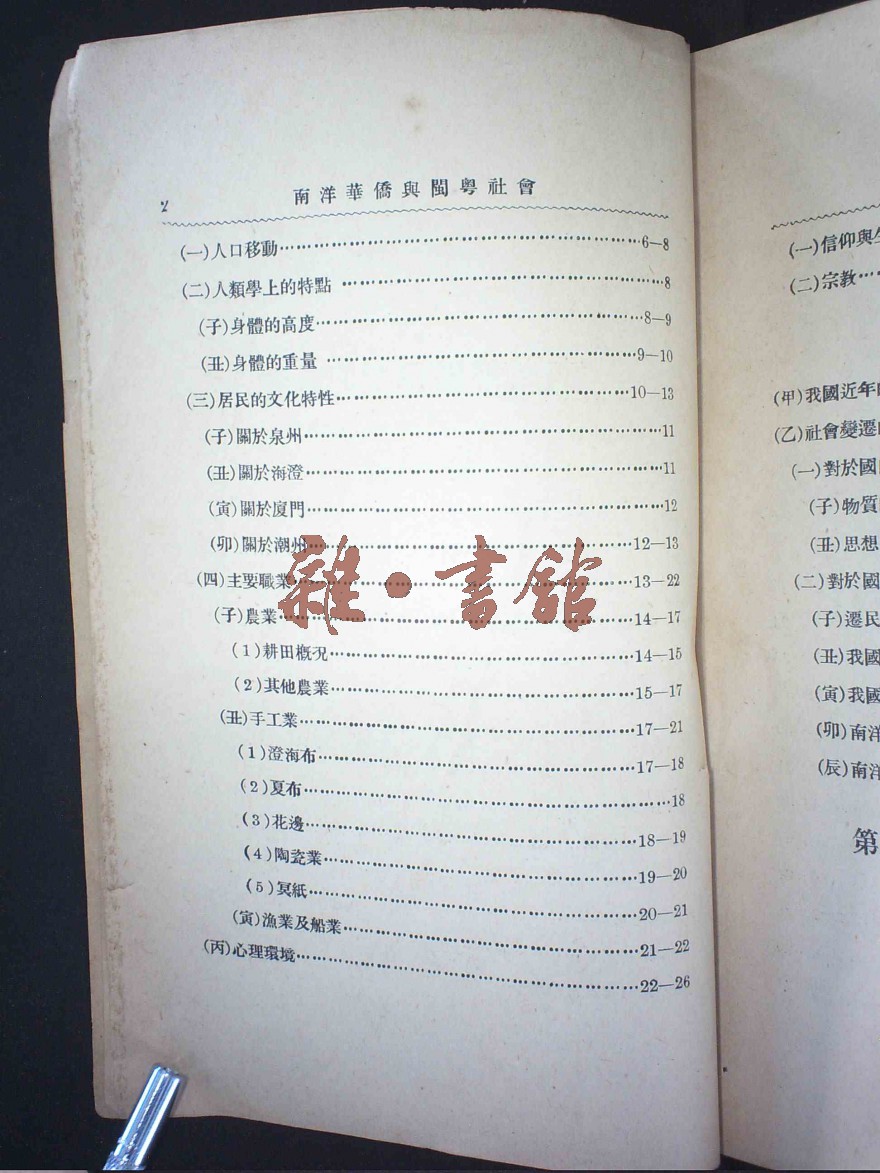 2
南洋華僑與閩粵社會
(一)人口移動……6—8
(二)人類學上的特點……8
(子)身體的高度……8—9
(丑)身體的重量……9—10
(三)居民的文化特性……10—13
(子)關於泉州……11
(丑)關於海澄……11
(寅)關於廈門……12
(卯)關於潮州……12—13
(四)主要職業……13—22
(子)農業……14—17
(1)耕田概況……14—15
(2)其他農業……15—17
(丑)手工業……17—21
(1)澄海布……17—18
(2)夏布……18
(3)花邊……18—19
(4)陶瓷業……19—20
(5)冥紙……20—21
(寅)漁業及船業……21—22
(丙)心理環境……22—26
雜·書館
(一)信仰與
(二)宗教……
(甲)我國近年
(乙)社會變遷
(一)對於國
(子)物質
(丑)思想
(二)對於國
(子)遷民
(丑)我國
(寅)我國
(卯)南洋
(辰)南洋
第